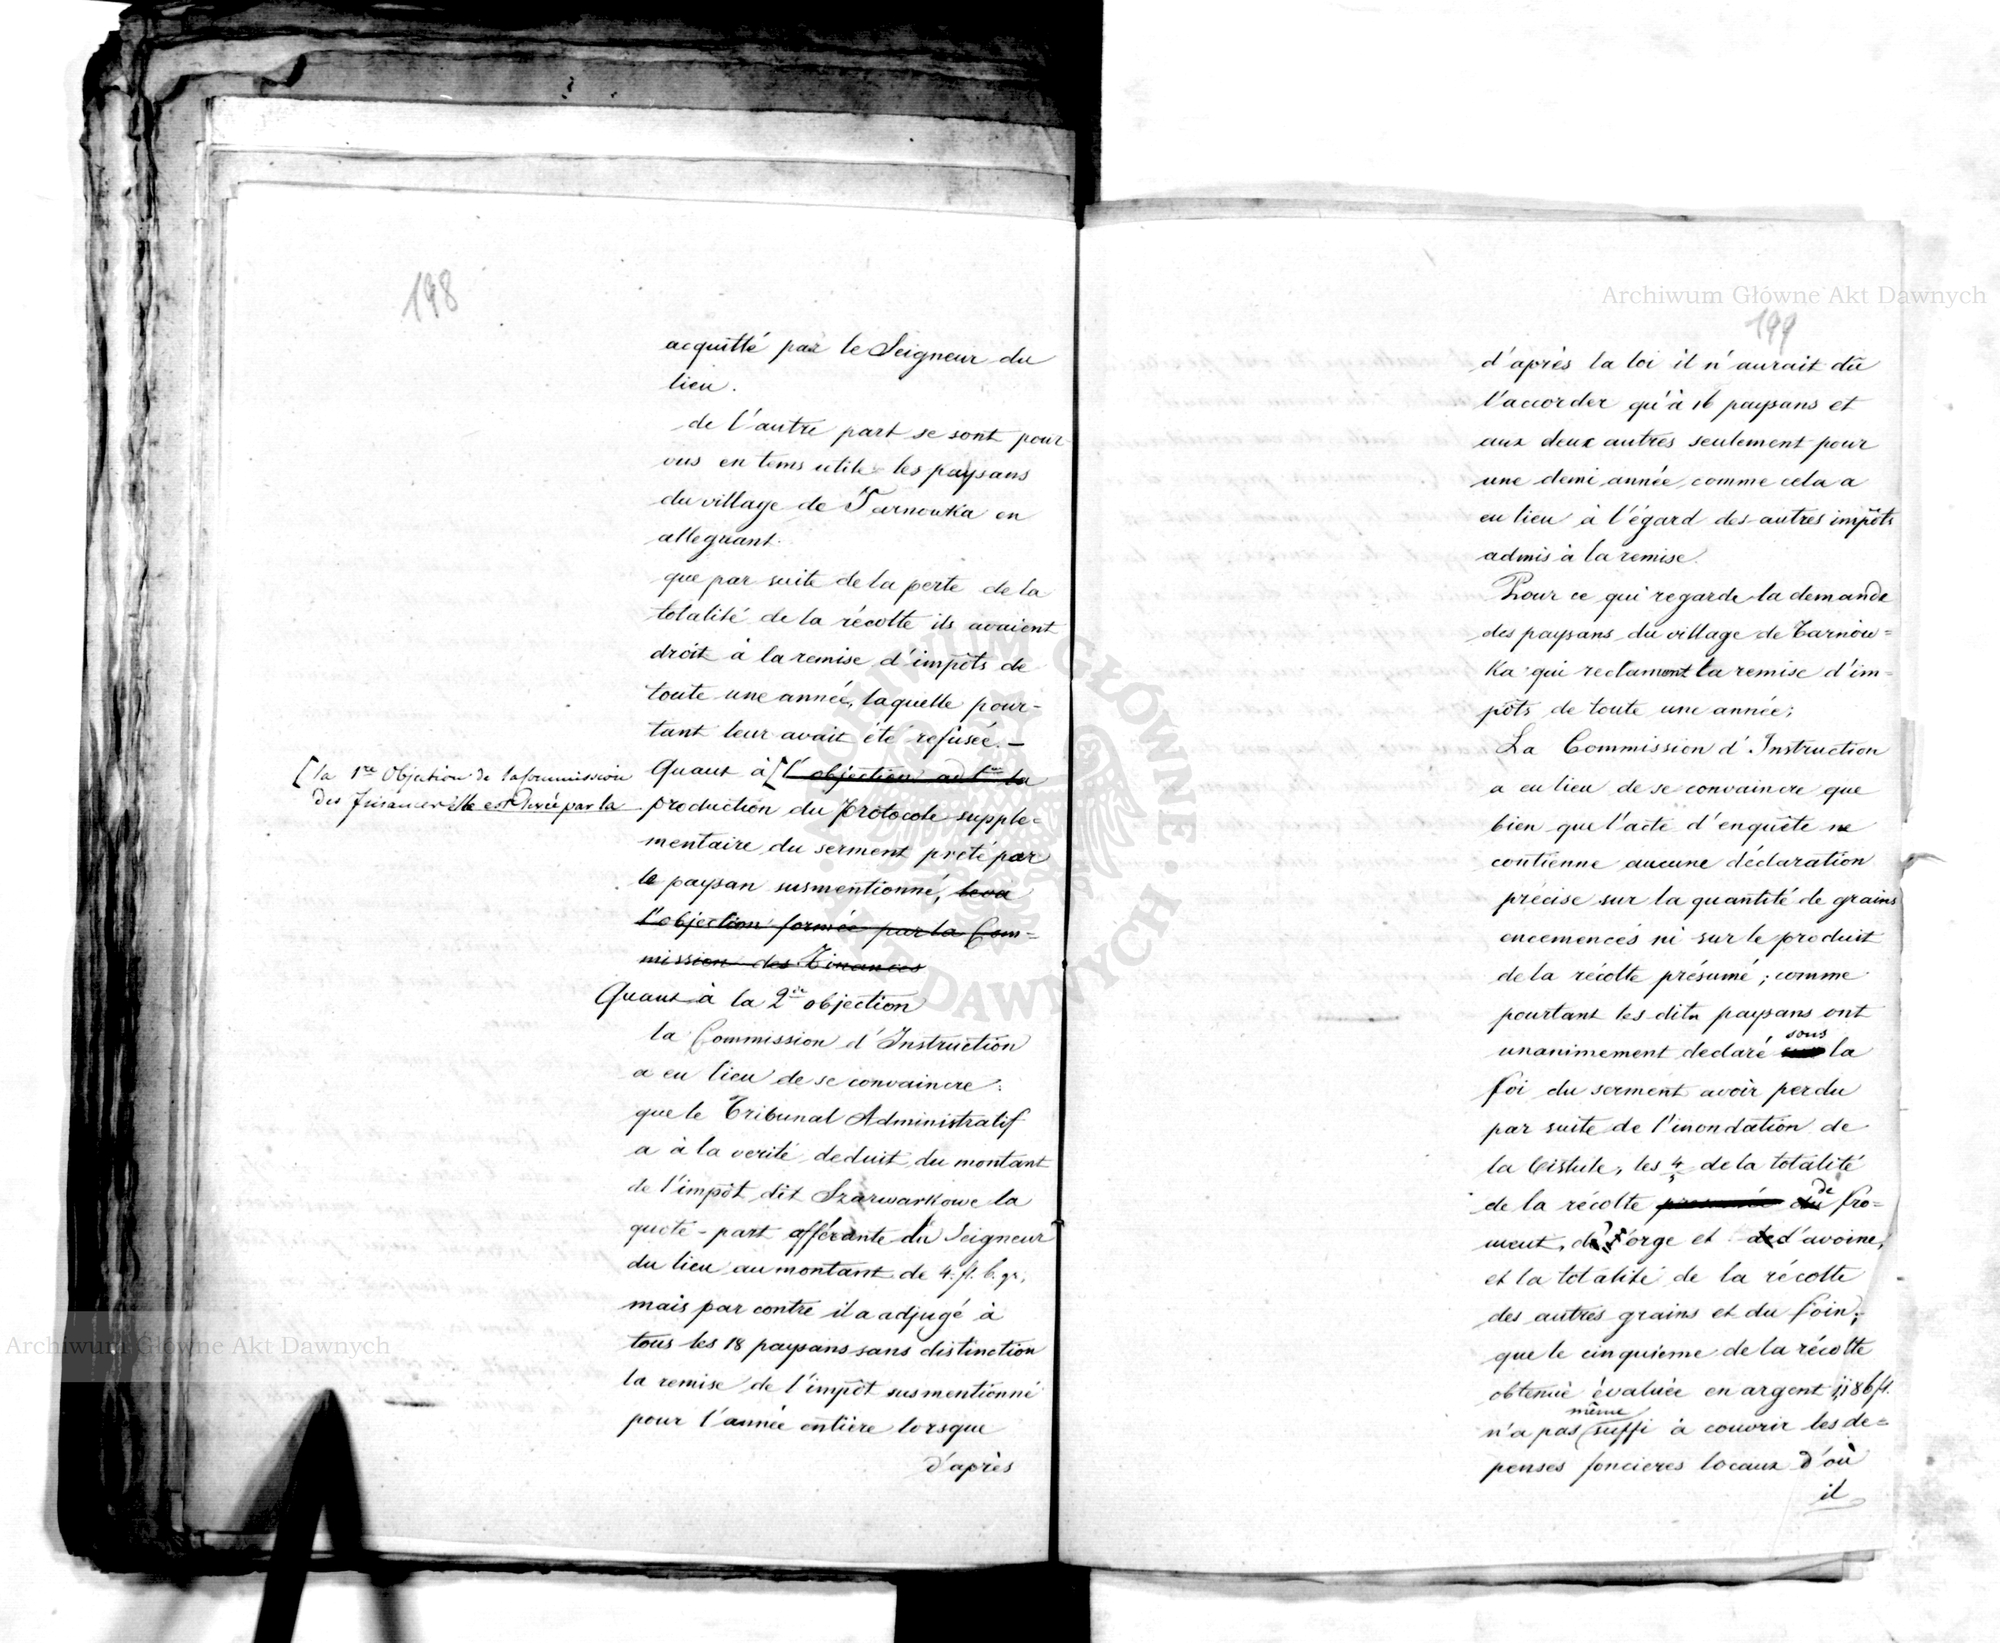 198
acquitté par le Seigneur du
lieu.
de l'autre part se sont pour
vus en tems utile les paysans
du village de Tarnowka en
alleguant.
que par suite de la perte de la
totalité de la récolte ils avaient
droit à la remise d'impôts de
toute une année, laquelle pour-
tant leur avait été refusée. –
Quant à [ l'objection ad 1um la
[ la 1re Objection de la Commission
des Finances elle est levée par la
production du Protocole supple-
mentaire du serment prêté par
le paysan susmentionné, leva
l'objection formée par la Com-
mission des Finances
Quant à la 2de objection
la Commission d'Instruction
a eu lieu de se convaincre:
que le Tribunal Administratif
a à la verité deduit du montant
de l'impôt dit Szarwarkowe la
quote-part afférante du Seigneur
du lieu au montant de 4. fl. 6. gr.
mais par contre il a adjugé à
tous les 18 paysans sans distinction
la remise de l'impôt susmentionné
pour l'année entière lorsque
d'après
199
d'après la loi il n'aurait dû
l'accorder qu'à 16 paysans et
aux deux autres seulement pour
une demi année, comme cela a
eu lieu à l'égard des autres impôts
admis à la remise.
Pour ce qui regarde la demande
des paysans du village de Tarnow=
ka qui reclament la remise d'im=
pôts de toute une année;
La Commission d'Instruction
a eu lieu de se convaincre que
bien que l'acte d'enquête ne
contienne aucune déclaration
précise sur la quantité de grains
encemencés ni sur le produit
de la récolte présumé; comme
pourtant les dits paysans ont
unanimement declaré sous la
foi du serment avoir perdu
par suite de l'inondation de
la Vistule, les 4/5 de la totalité
de la récolte présumée du de fro=
ment, d'orge et de d'avoine,
et la totalité de la récolte
des autres grains et du foin;
que le cinquieme de la récolte
obtenue évaluée en argent 1186 fl.
n'a pas même suffi à couvrir les de=
penses foncieres locaux d'où
il
Archiwum Główne Akt Dawnych
Archiwum Główne Akt Dawnych
ARCHIWUM GŁÓWNE AKT DAWNYCH